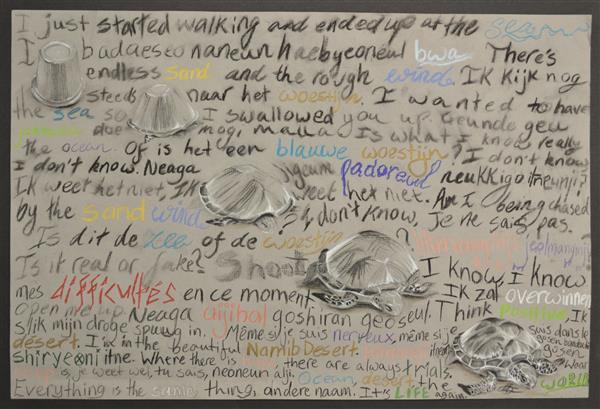 I just started walking and ended up at the
I badaeso naneun haebyconeul bwa There's
endless sand and the rough winds Ik Kijk nog
steeds naar het woestijn. I wanted to have
the sea so I swallowed you up. Geunde geu
due mogi, malla Is what I know really
the ocean. Of is het een blauwe woestijn? I don't know
I don't know. Neaga padoreul neukkigo itneunji?
Ik weet het niet, Ik weet het niet. Am I being chased
by the sand wind I don't know, Je ne sais pas.
Is dit de zee of de woestijn ?
Is it real or fake? Shoot I know I know
mes difficultés en ce moment Ik zal overwinnen
open me up. Neaga gijibal goshiran geoseul. Think positive, Ik
slik mijn droge spuug in. Même si je suis nerveux, même si je suis dans le
desert. I in the beautiful Namib Desert.
shiryeoni itne. Where there is there are always trials. Waar
is, je weet wel, tu sais, neoneun alji. Ocean, desert, the world
Everything is the same thing, andere naam. It is LIFE again.